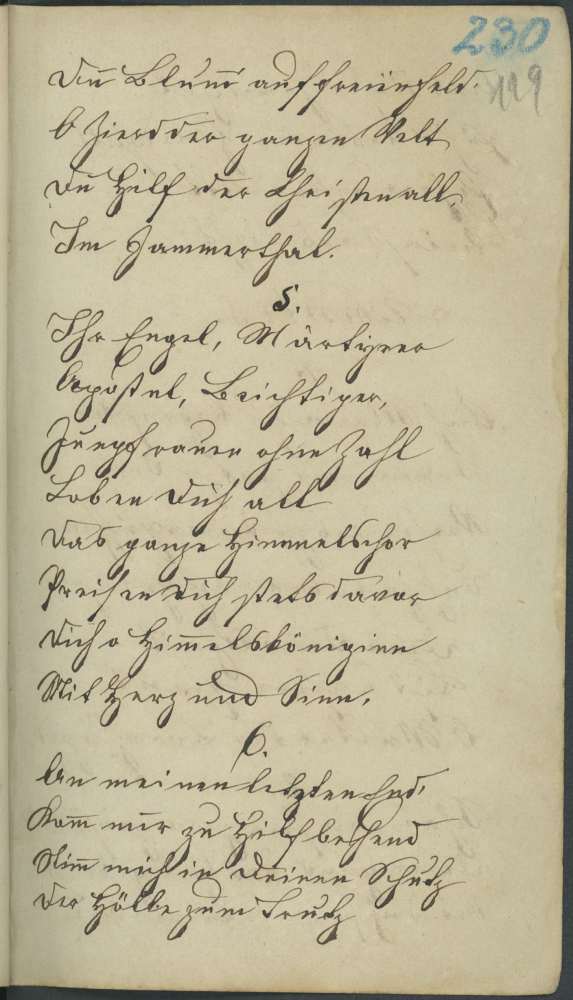 230
119
Du Blum̄ auf freiem Feld.
O Zierd der ganzen Welt
Du Hilf der Christen all.
Im Jammerthal.
5.
Ihr Engel, Märtyrer
Apostel, Beichtiger,
Jungfrauen ohne Zahl
Loben dich all
Das ganze Himmelschor
Preisen dich stets davor
Dich o Him̄elsköniginn
Mit Herz und Sinn.
6.
An meinen letzten End'
Kom̄ mir zu Hilf behend
Nim̄ mich in deinen Schutz
Der Hölle zum Trutz